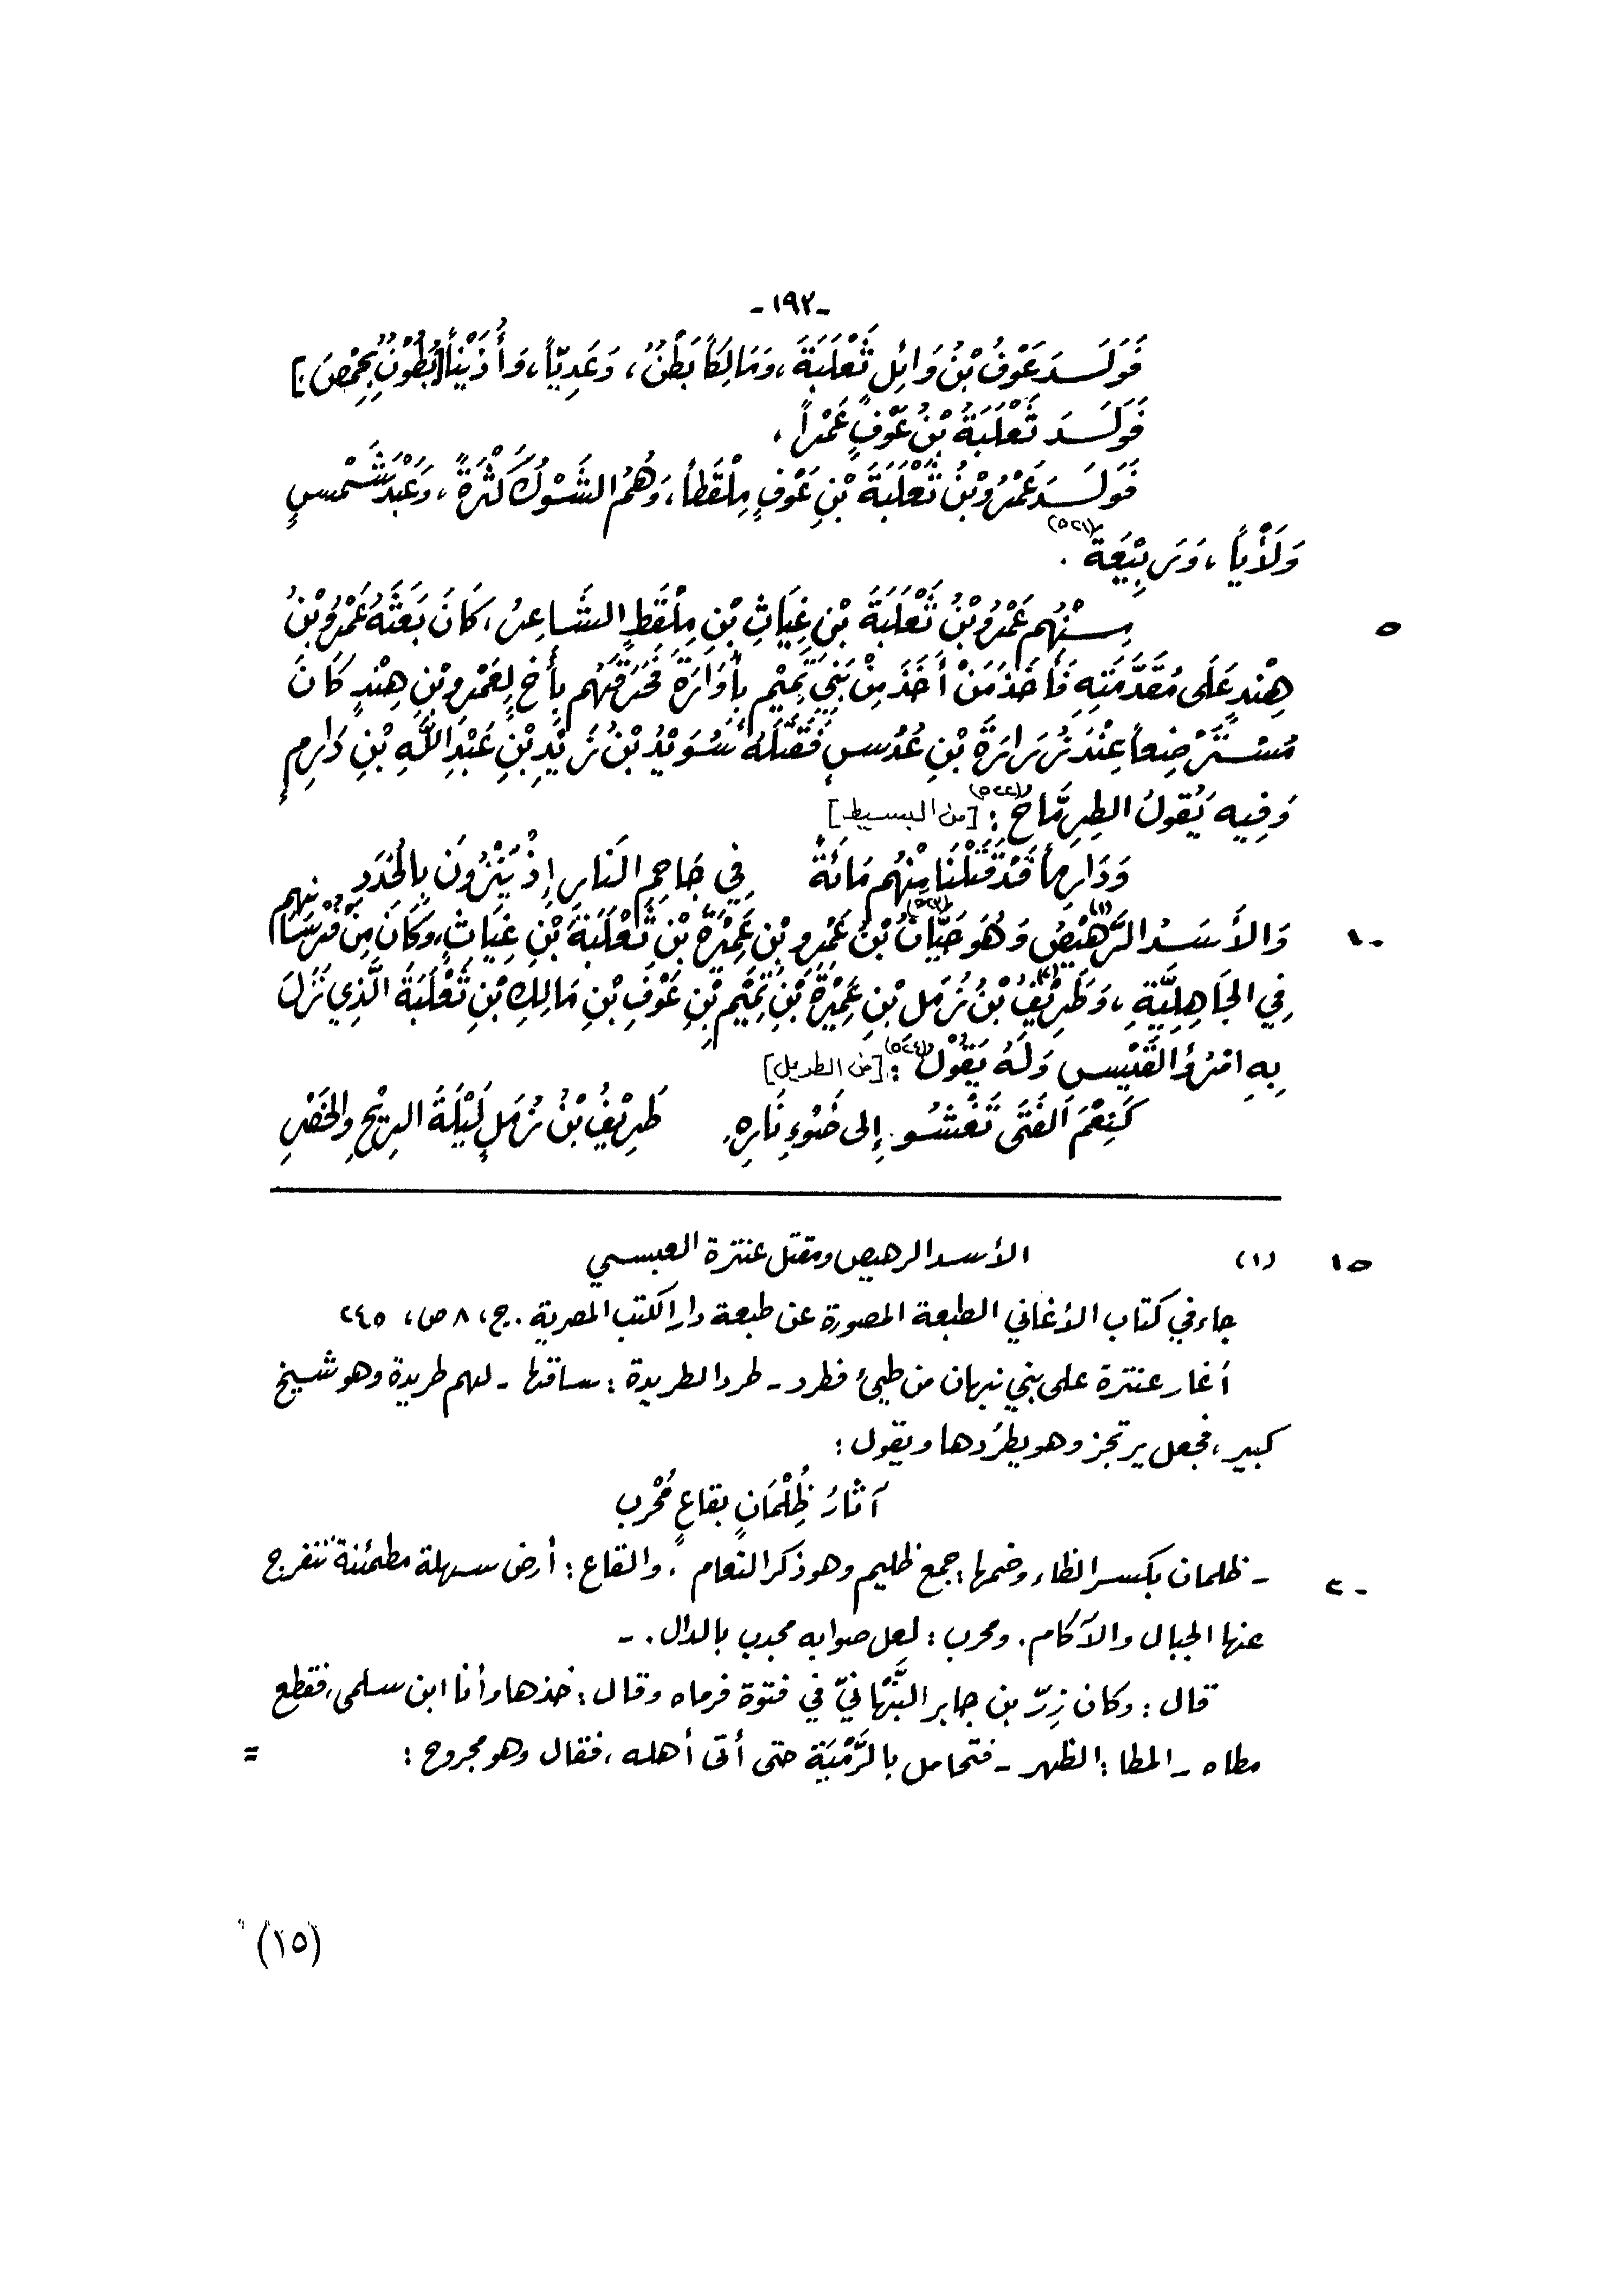 -١٩٢-
فَوَلَدَ عَوْفُ بْنُ وَائِلِ ثَعْلَبَةَ، وَمَالِكَاً بَطْنٌ، وَعَدِيّاً، وَأُذَيْنَاً [بُطُوْنٌ بِحِمْصَ.]
فَوَلَدَ ثَعْلَبَةُ بْنُ عَوْفٍ عَمْرَاً،
فَوَلَدَ عَمْرُو بْنُ ثَعْلَبَةَ بْنِ عَوْفٍ مِلْقَطَاً، وَهُمُ الشَّوْكُ كَثْرَةً، وَعَبْدَ شَمْسٍ
وَلَأْيَاً، وَرَبِيْعَةَ (٥٢١).
٥ مِنْهُم عَمْرُو بْنُ ثَعْلَبَةَ بْنِ غِيَاثِ بْنِ مِلْقَطٍ الشَّاعِرُ، كَانَ بَعَثَهُ عَمْرُو بْنُ
هِنْدٍ عَلَى مُقَدَّمَتِهِ فَأَخَذَ مَنْ أَخَذَ مِنْ بَنِي تَمِيْمٍ بِأُوَارَةَ فَحَرَّقَهُم بِأَخٍ لِعَمْرِو بْنِ هِنْدٍ كَانَ
مُسْتَرْضِعاً عِنْدَ زُرَارَةَ بْنِ عُدُسٍ فَقَتَلَهُ سُوَيْدُ بْنُ زَيْدِ بْنِ عَبْدِ اللَّهِ بْنِ دَارِمٍ
وَفِيهِ يَقُولُ الطِّرِمَّاحُ (٥٢٢): [من البسيط]
وَدَارِمَاً قَدْ قَتَلْنَا مِنْهُم مَائَةً فِي جَاحِمِ النَارِ إِذْ يَنْزُونَ بِالْخُدَدِ
١٠ وَالأَسَدُ الرَّهِيْصُ (١) وَهُوَ حَيَّانُ (٥٢٣) بْنُ عَمْرِو بْنِ عَمِيْرَةَ بْنِ ثَعْلَبَةَ بْنِ غِيَاثٍ، وَكَانَ مِنْ فُرْسَانِهِم
فِي الجَاهِلِيَّةِ، وَطَرِيْفُ (٢) بْنُ زُمَلِ بْنِ عَمِيْرَةَ بْنِ تَمِيْمِ بْنِ عَوْفِ بْنِ مَالِكِ بْنِ ثَعْلَبَةَ الَّذِي نَزَلَ
بِهِ امْرُؤُ القَيْسِ وَلَهُ يَقُوْلُ (٥٢٤): [من الطويل]
كَنِعْمَ الفَتَى تَعْشُو إِلى ضَوْءِ نَارِهِ طَرِيْفُ بْنُ زُمَلٍ لَيْلَةَ الرِيْحِ والخَصَرِ
١٥ (١) الأسد الرهيص ومقتل عنترة العبسي
جاء في كتاب الأغاني الطبعة المصورة عن طبعة دار الكتب المصرية. ج، ٨ ص، ٢٤٥
أغار عنترة على بني نبهان من طيئ فطرد - طرد الطريدة: ساقها - لهم طريدة وهو شيخ
كبير، فجعل يرتجز وهو يطرُدها ويقول:
آثارُ ظُِلْمَانٍ بقاعٍ مُحْرب
٢٠ - ظلمان بكسر الظاء وضمها: جمع ظليم وهو ذكر النعام. والقاع: أرض سهلة مطمئنة تنفرج
عنها الجبال والآكام. ومحرب: لعل صوابه مجدب بالدال. -
قال: وكان زِرّ بن جابر النَّبْهَانيّ في فتوة فرماه وقال: خذها وأنا ابن سلمى، فقطع
مطاه - المطا: الظهر - فتحامل بالرَّمْيَة حتى أتى أهله، فقال وهو مجروح: =
(١٥)